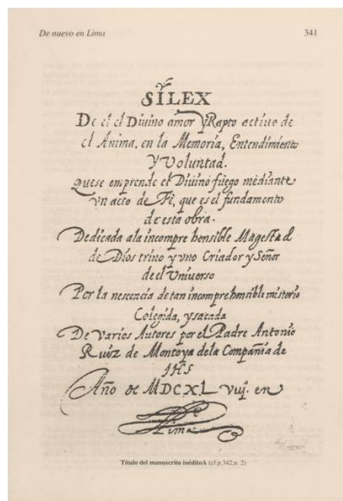 De nuevo en Lima
341
SÍLEX
De el el Diuino amor y Rapto actiuo de
el Anima, en la Memoria, Entendimiento
y Voluntad.
Quese emprende el Diuino fuego mediante
vn acto de Fè, que es el fundamento
de esta obra.
Dedicada ala incomprehensible Magestad
de Dios trino y vno Criador y Señor
de el Vniuerso
Por la nesciencia de tan incomprehensible misterio
Colegida, y sacada
De Varios Autores por el Padre Antonio
Ruiz de Montoya dela Compañia de
IHS
Año de MDCXL viij. en
Lima
Título del manuscrito inéditoA (cf p 342,n. 2)